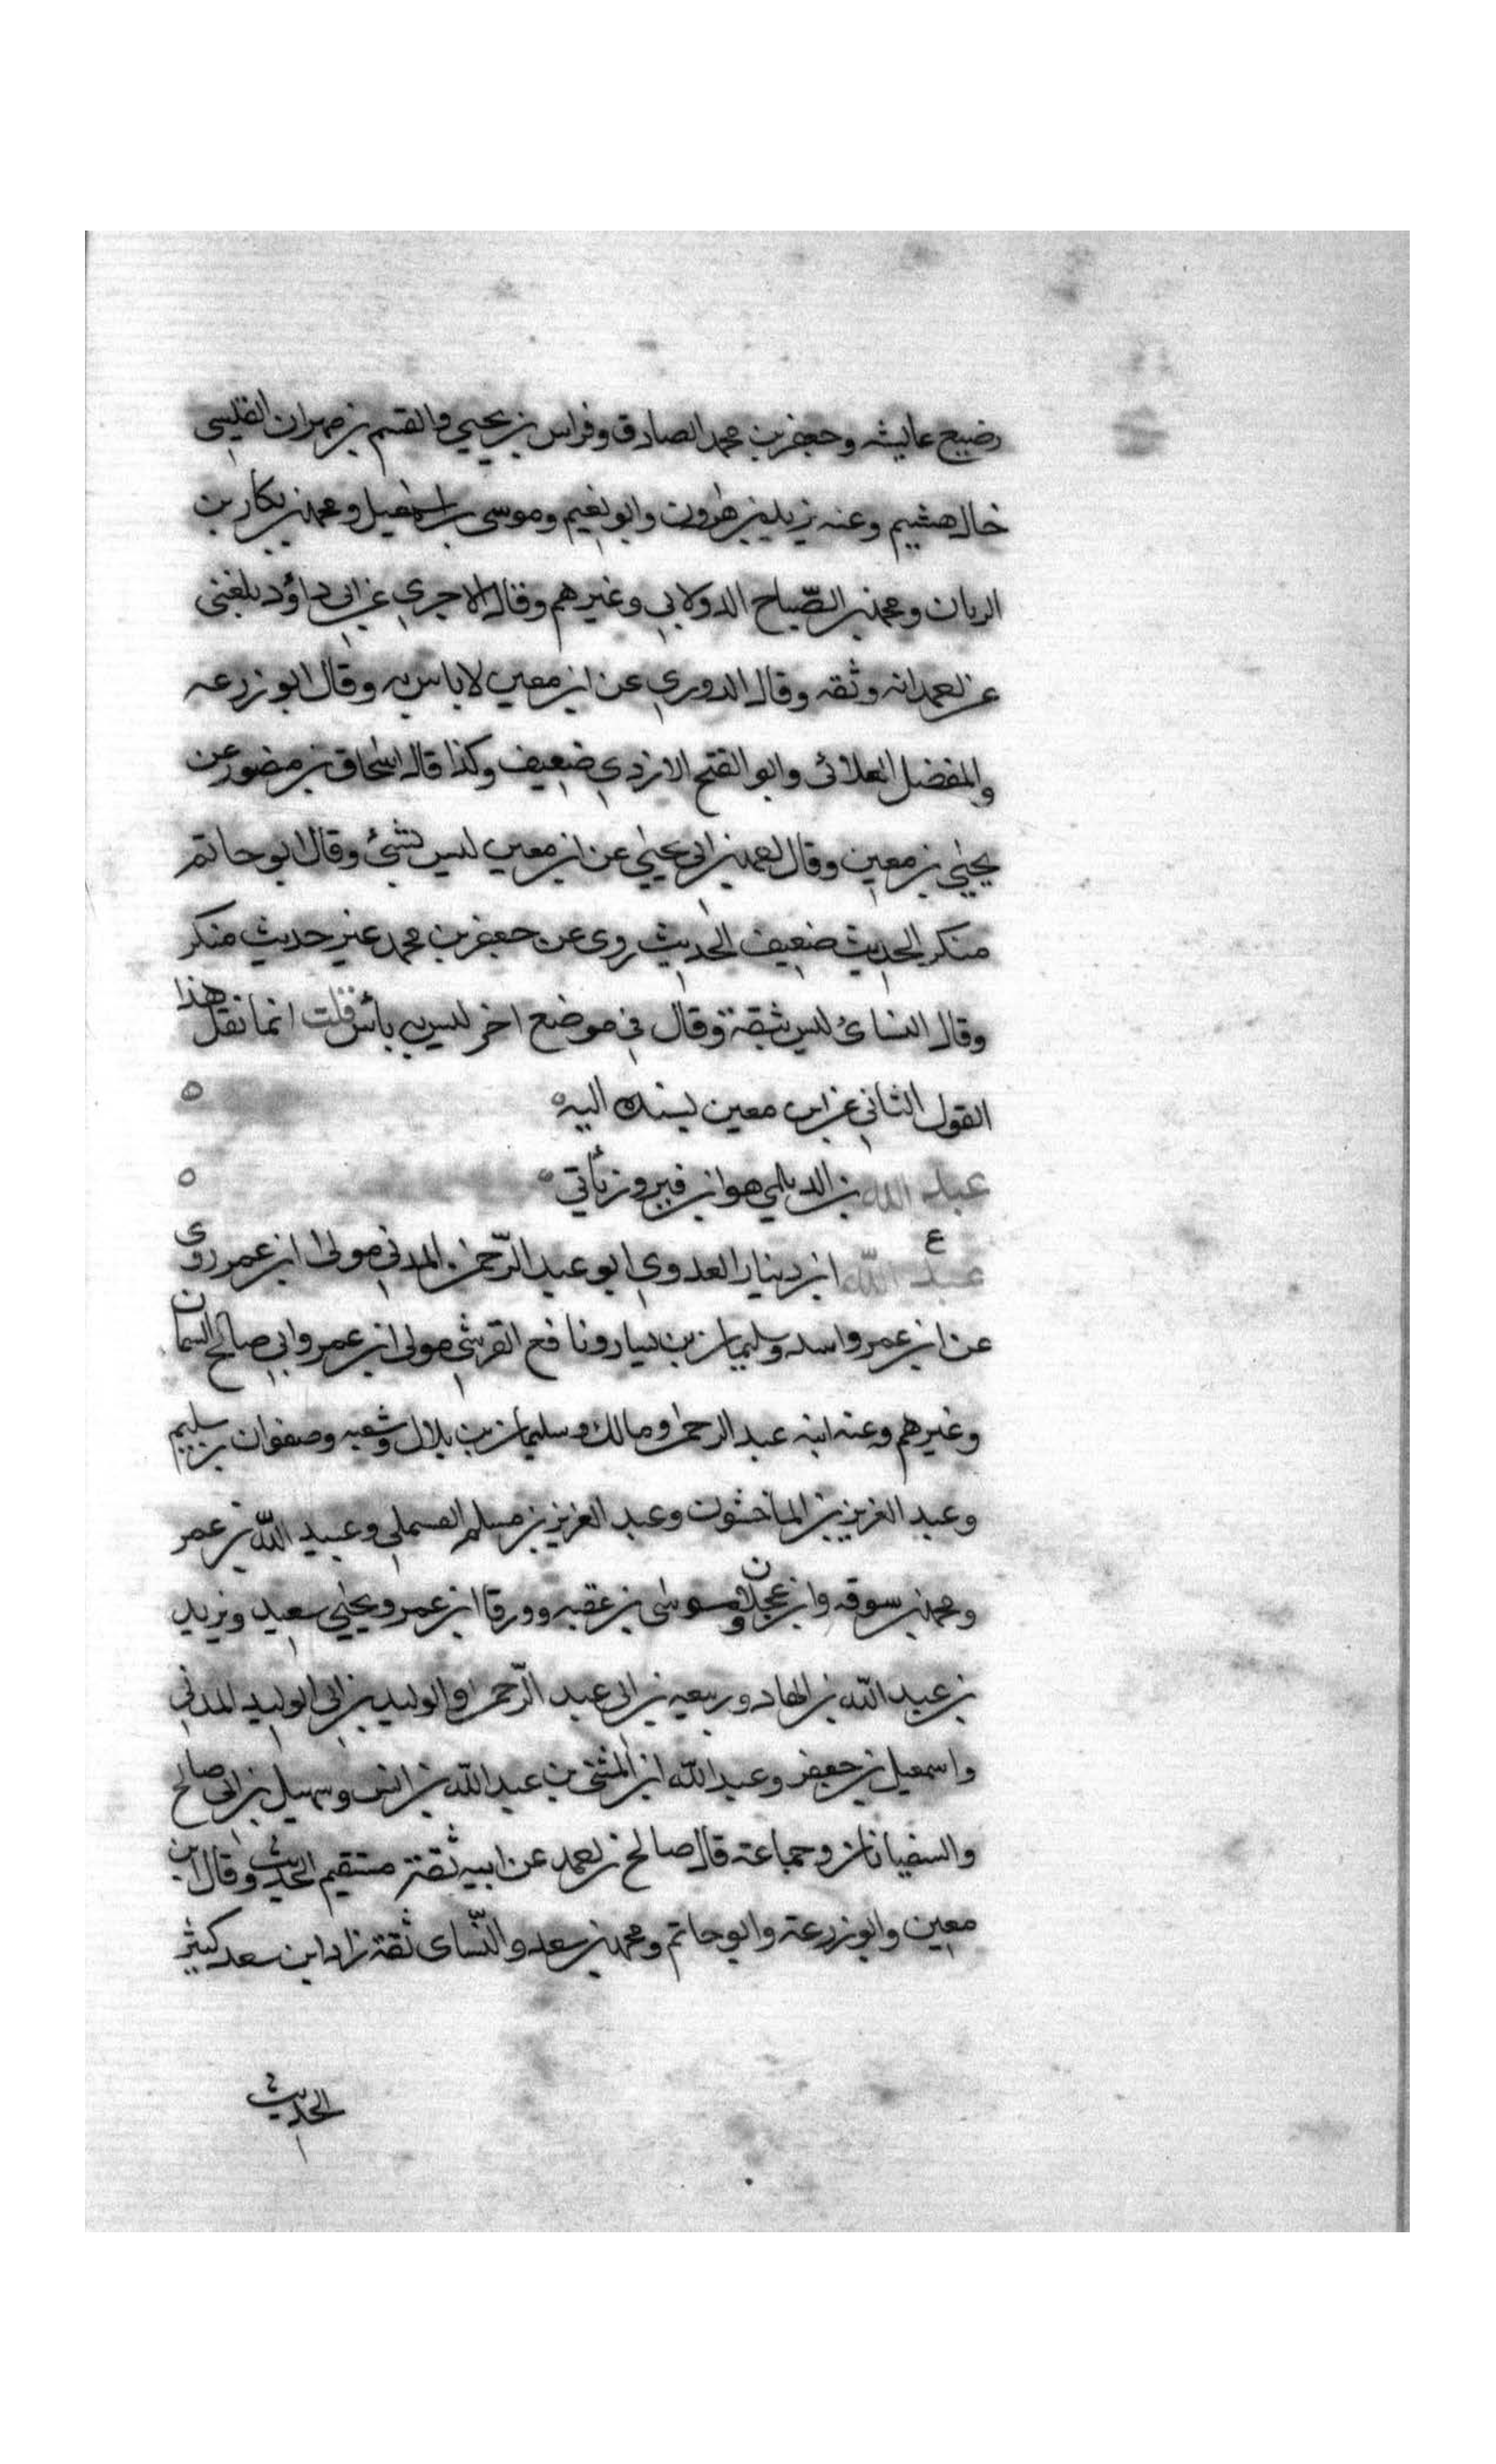 رضيع عايشه وجعفر بن محمد الصادق وفراس بن يحيى والقسم بن مهران القيسى
خال هشيم وعنه يزيد بن هرون وابو نعيم وموسى بن اسمعيل ومحمد بن بكار بن
الريان ومحمد بن الصّباح الدولابي وغيرهم وقال الاجري عن ابي داؤد بلغنى
عن احمد انه وثقه وقال الدوري عن ابن معين لا باس به وقال ابو زرعه
والمفضل العلائى وابو الفتح الازدي ضعيف وكذا قال اسحاق بن منصور عن
يحيى بن معين وقال احمد بن ابي يحيى عن ابن معين ليس بشئ وقال ابو حاتم
منكر الحديث ضعيف الحديث روى عن جعفر بن محمد غير حديث منكر
وقال النسائ ليس بثقة وقال في موضع اخر ليس به بأس قلت انما نقل هذا
القول الثاني عن ابن معين بسنده اليه ه
عبد الله بن الديلمي هو ابن فيروز يأتي ه
ع
عبد الله ابن دينار العدوي ابو عبد الرّحمن المدني مولى ابن عمر روى
عن ابن عمر وانس وسليمان بن يسار ونافع القرشي مولى ابن عمر وابي صالح السمان
وغيرهم وعنه ابنه عبد الرحمن ومالك وسليمان بن بلال وشعبه وصفوان بن سليم
وعبد العزيز بن الماجشون وعبد العزيز بن مسلم القسملي وعبيد الله بن عمر
ومحمد بن سوقه وابن عجلان وموسى بن عقبه وورقا ابن عمر ويحيى سعيد ويزيد
بن عبد الله بن الهاد وربيعه بن ابي عبد الرّحمن والوليد بن ابي الوليد المدني
واسمعيل بن جعفر وعبد الله ابن المثنى بن عبد الله بن انس وسهيل بن ابي صالح
والسفيانان وجماعة قال صالح بن احمد عن ابيه ثقة مستقيم الحديث وقال ابن
معين وابو زرعة وابو حاتم ومحمد بن سعد والنّساى ثقة زاد ابن سعد كثير
الحديث